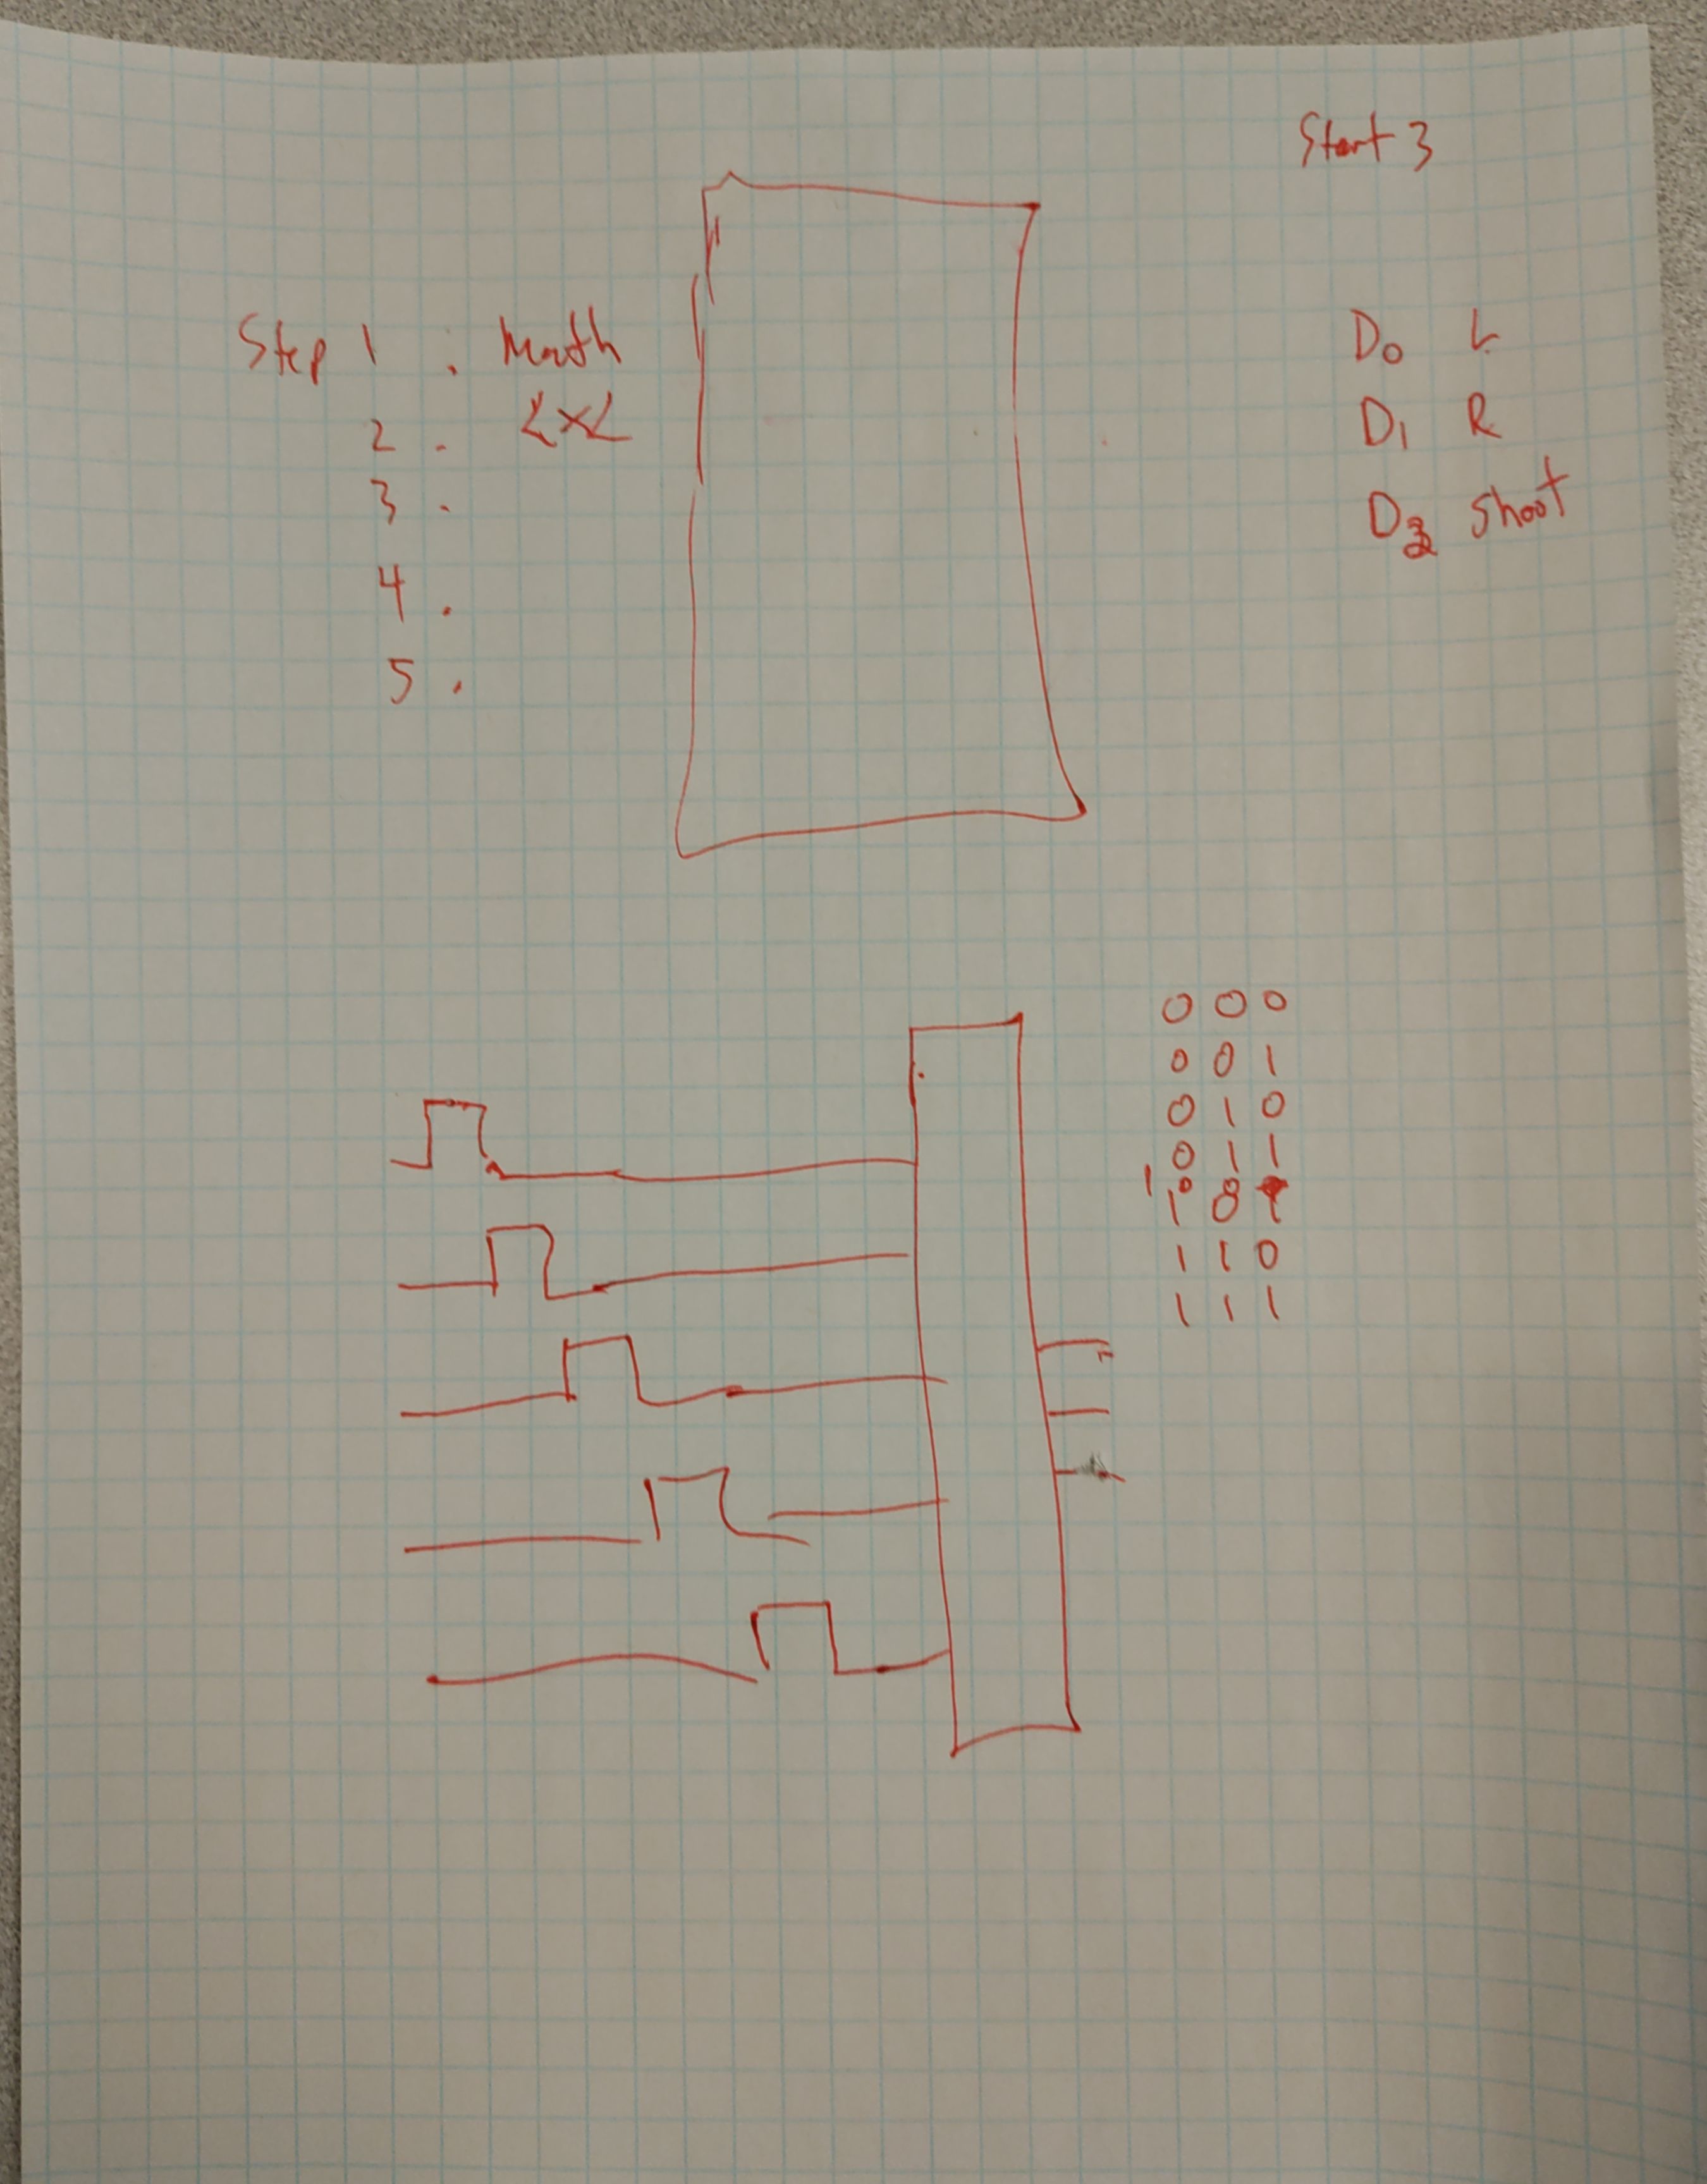 Start 3
Step 1 : Math
2 .
3 .
4 .
5 .
D0 L
D1 R
D2 Shoot
0 0 0
0 0 1
0 1 0
0 1 1
1 1 0
1 1 1